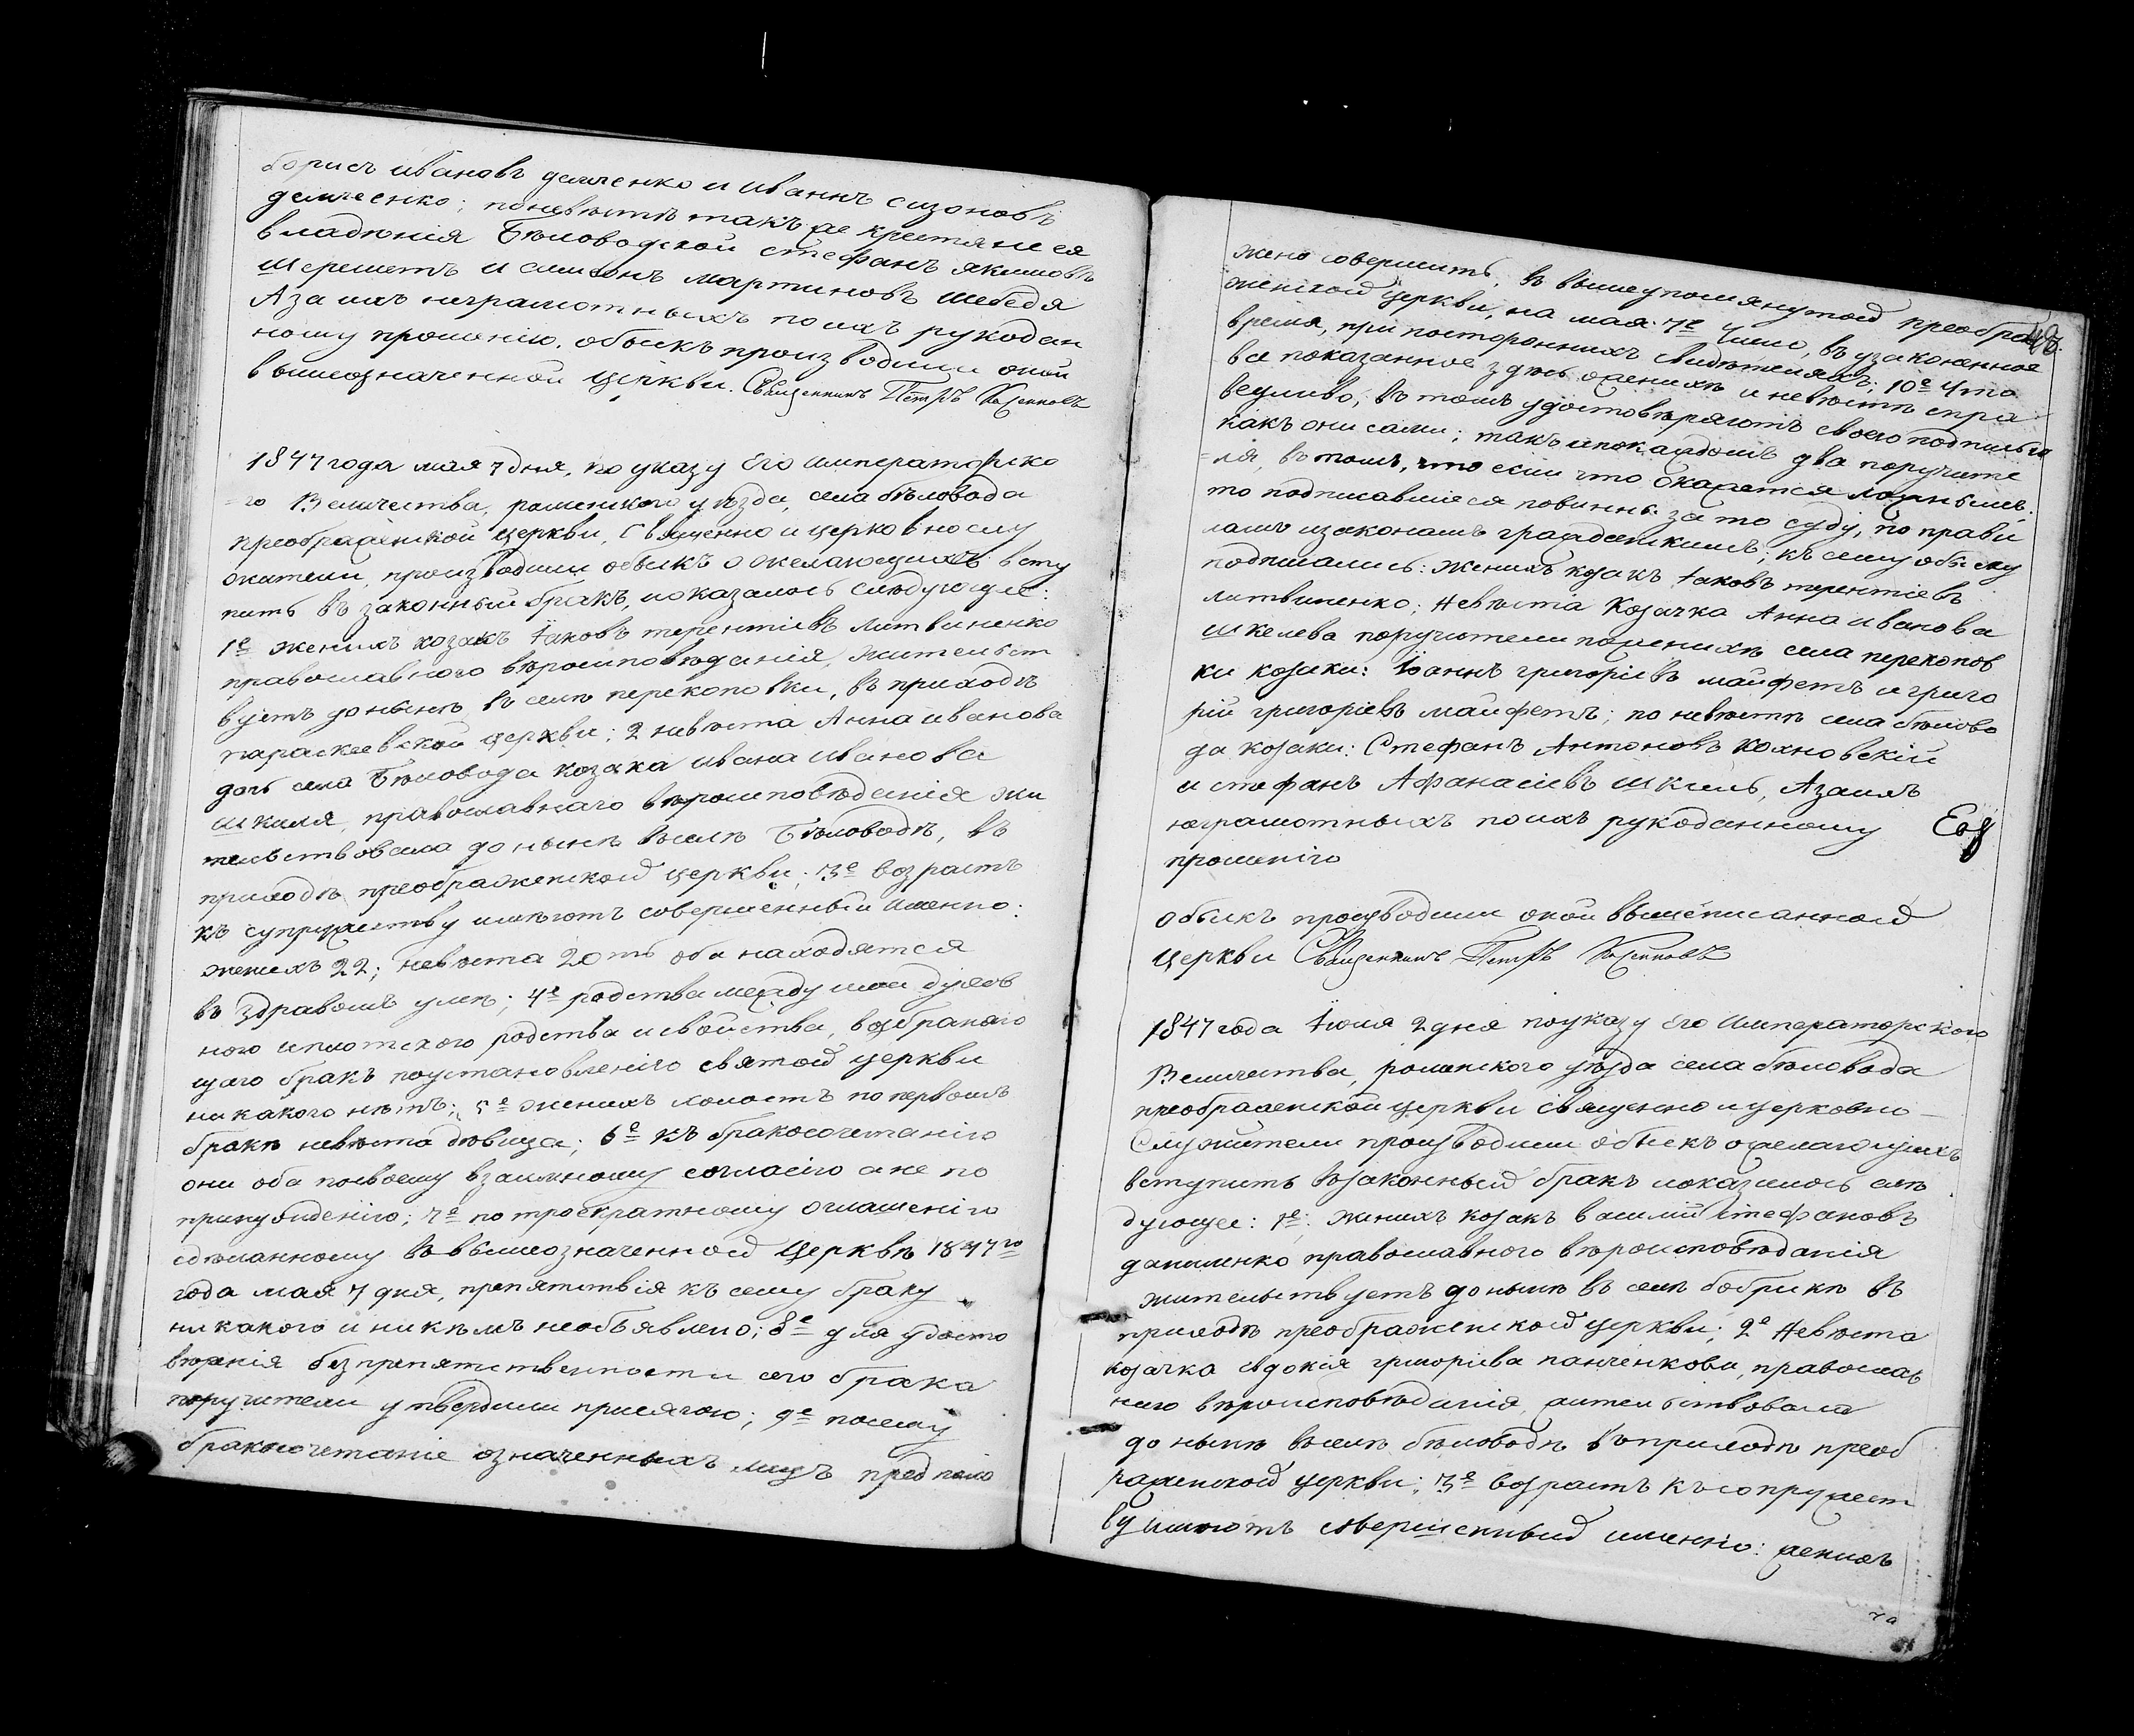 борисъ ивановъ демченко и иваннъ сизоновъ
демченко; поневѣстѣ такъ же крестяне ея
владѣнія Бѣловодской стефанъ якимовъ
шерешетъ и симонъ мартиновъ шебедя
Аза ихъ награмотныхъ поихъ рукодан
ному прошенію. обыскъ производили оной
вышеозначенной церкви. Священникъ Петръ
1847 года мая 7 дня, по указу Его императорско
го Величества, роменского уѣзда, села бѣловода
преображенской церкви, священно и церковнослу
жители, производили обыскъ ожелающихъ всту
пить въ законный бракъ, и оказалось слѣдующее:
1е женихъ козакъ іаковъ терентіевъ литвиненко
православного вѣроисповѣданія, жительст
вуетъ донынѣ въ селѣ перекоповки, въ приходѣ
параскеевской церкви; 2 невѣста Анна иванова
дочь села Бѣловода козака ивана иванова
шкиля, православнаго вѣроисповѣданія жи
тельствовала донынѣ въселѣ Бѣловодѣ, въ
приходѣ преображенской церкви; 3е возрастъ
къ супружеству имѣютъ совершенный именно:
женихъ 22; невѣста 20ть оба находятся
въ здравомъ умѣ; 4е родства между ими духов
ного иплотского родства исвойства, возбраняю
щаго бракъ поустановленію святой церкви
никакого нѣтъ; 5е женихъ холостъ по первомъ
бракѣ невѣста дѣвица; 6е къ бракосочетанію
они оба посвоему взаимному согласію а не по
принужденію; 7е по троекратному оглашенію
сдѣланному въ вышеозначенной Церквѣ 1847го
года мая 7 дня, препятствія къ сему браку
никакого и никѣмъ необъявлено; 8е для удосто
вѣренія безпрепятственности сего брака
поручители утвердили присягою; 9е посему
бракосочетаніе означенныхъ лицъ предполо
жено совершить, въ вышеупомянутой преобра
женской Церкви, на мая 7е число, въ узаконенное
время, при постороннихъ свидѣтеляхъ; 10е Что
все показанное здесь оженихѣ и невѣстѣ спра
ведливо, въ томъ удостовѣряютъ своею подписью
какъ они сами; такъ ипокаждомъ два поручите
ля, въ томъ, что если что окажется ложнымъ,
то подписавшіеся повинны за то суду, по прави
ламъ изаконамъ гражданскимъ; къ сему обыску
подписались: женихъ козакъ іаковъ терентіевъ
литвиненко; невѣста Козачка Анна иванова
шкелева поручители поженихѣ села перекопов
ки козаки: іоаннъ григоріевъ майфетъ и григо
рій григоріевъ майфетъ; по невѣстѣ села бѣлово
да козаки: Стефанъ Антоновъ кохновскій
и стефанъ Афанасіевъ шкиль, Азаихъ
неграмотныхъ поихъ рукоданному
прошенію
обыскъ производили оной вышеписанной
церкви Священникъ Петръ
1847 года іюля 2 дня поуказу Его Императорского
Величества, роменского уѣзда села бѣловода
преображенской церкви священно и церковно
Служители производили обыскъ ожелающихъ
вступить взаконный бракъ иоказалось слѣ
дующее: 1е: женихъ козакъ василій стефановъ
даниленко православного вѣроисповѣданія
жительствуетъ донынѣ въ селѣ бобрикѣ въ
приходѣ преображенской церкви; 2е невѣста
козачка евдокія григоріева панченкова, православ
ного вѣроисповѣданія жительствовала
донынѣ въселѣ бѣловодѣ въ приходѣ преоб
раженской церкви; 3е возрастъ къ сопружест
ву имѣютъ совершенный именно: женихъ